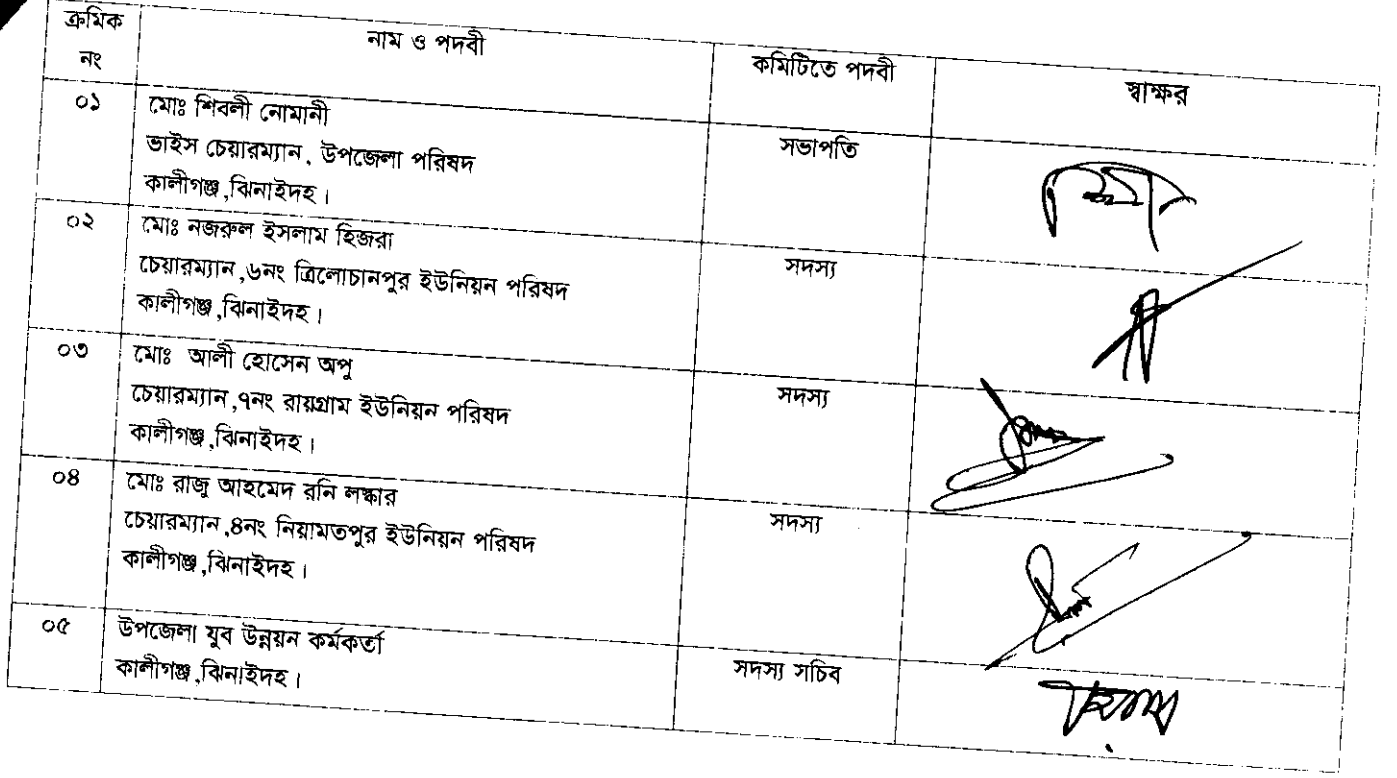 ক্রমিক
নং
নাম ও পদবী
কমিটিতে পদবী
স্বাক্ষর
০১
মোঃ শিবলী নোমানী
ভাইস চেয়ারম্যান, উপজেলা পরিষদ
কালীগঞ্জ,ঝিনাইদহ।
সভাপতি
০২
মোঃ নজরুল ইসলাম হিজরা
চেয়ারম্যান,৬নং ত্রিলোচানপুর ইউনিয়ন পরিষদ
কালীগঞ্জ,ঝিনাইদহ।
সদস্য
০৩
মোঃ আলী হোসেন অপু
চেয়ারম্যান,৭নং রায়গ্রাম ইউনিয়ন পরিষদ
কালীগঞ্জ,ঝিনাইদহ।
সদস্য
০৪
মোঃ রাজু আহমেদ রনি লস্কার
চেয়ারম্যান,৪নং নিয়ামতপুর ইউনিয়ন পরিষদ
কালীগঞ্জ,ঝিনাইদহ।
সদস্য
০৫
উপজেলা যুব উন্নয়ন কর্মকর্তা
কালীগঞ্জ,ঝিনাইদহ।
সদস্য সচিব